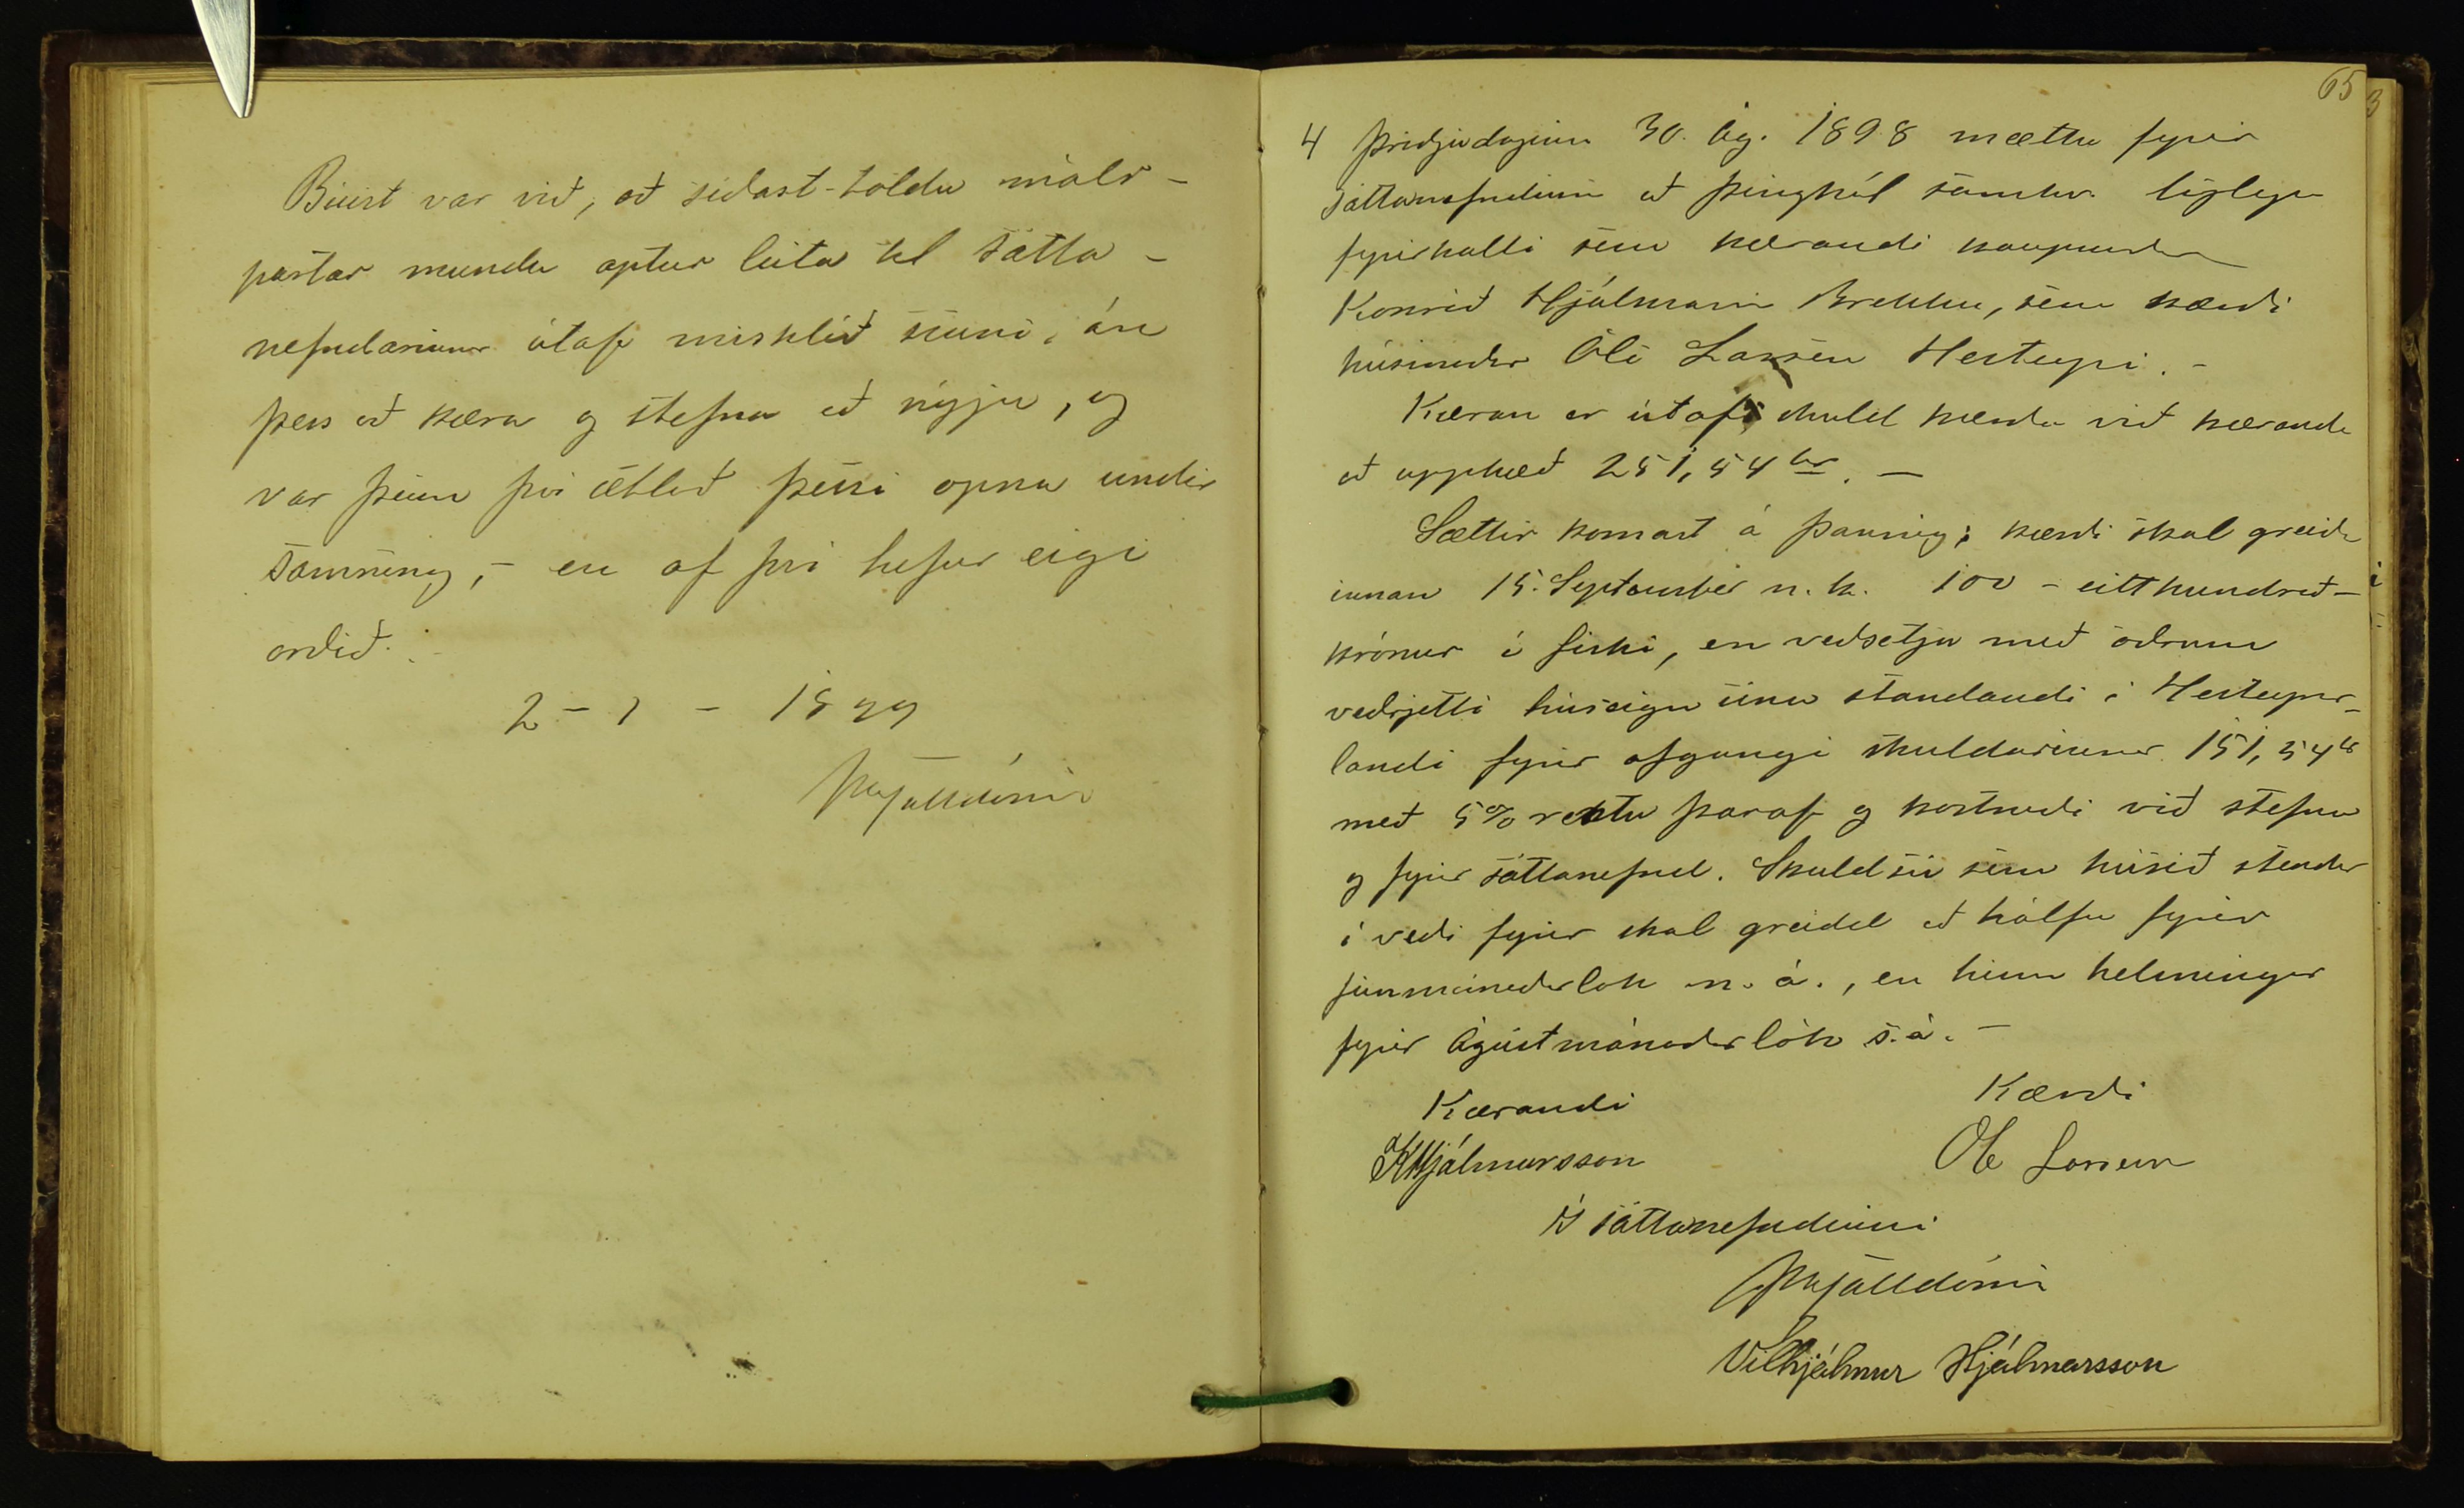 Búist var við, að síðast-töldu máls-
partar mundu aptur leita til sátta-
nefndarinnar útaf misklíð sinni, án
þess að kæra og stefna að nýju, og
var þeim því ætlað þessi opna undir
samning, - en af því hefur eigi
orðið.
2 - 1 - 1899
65
4 Þriðjudaginn 30. Ág. 1898 mættu fyrir
sáttanefndinni að Þinghól samkv. löglegu
fyrirkalli sem kærandi kaupmaður
Konráð Hjálmarsson Brekku, sem kærði
húsmaður Óli Larsen Hesteyri. -
Kæran er útaf skuld kærða við kæranda
að upphæð 251,54 kr. -
Sættir komast á þannig; kærði skal greiða
innan 15. September n.k. 100 - eitthundrað -
krónur í fiski, en veðsetja með öðrum
veðrjetti húseign sína standandi í Hesteyrar-
landi fyrir afgangi skuldarinnar 151,54 kr
með 5% rentu þaraf og kostnaði við stefnu
og fyrir sáttanefnd. Skuld sú sem húsið stendur
í veði fyrir skal greidd að hálfu fyrir
júnmánaðarlok n.á., en hinn helmingur
fyrir Ágústmánaðarlok s.á. -
Kærandi Kærði
KHjálmarsson Ole Larsen
Í sáttanefndinni
Vilhjálmur Hjálmarsson